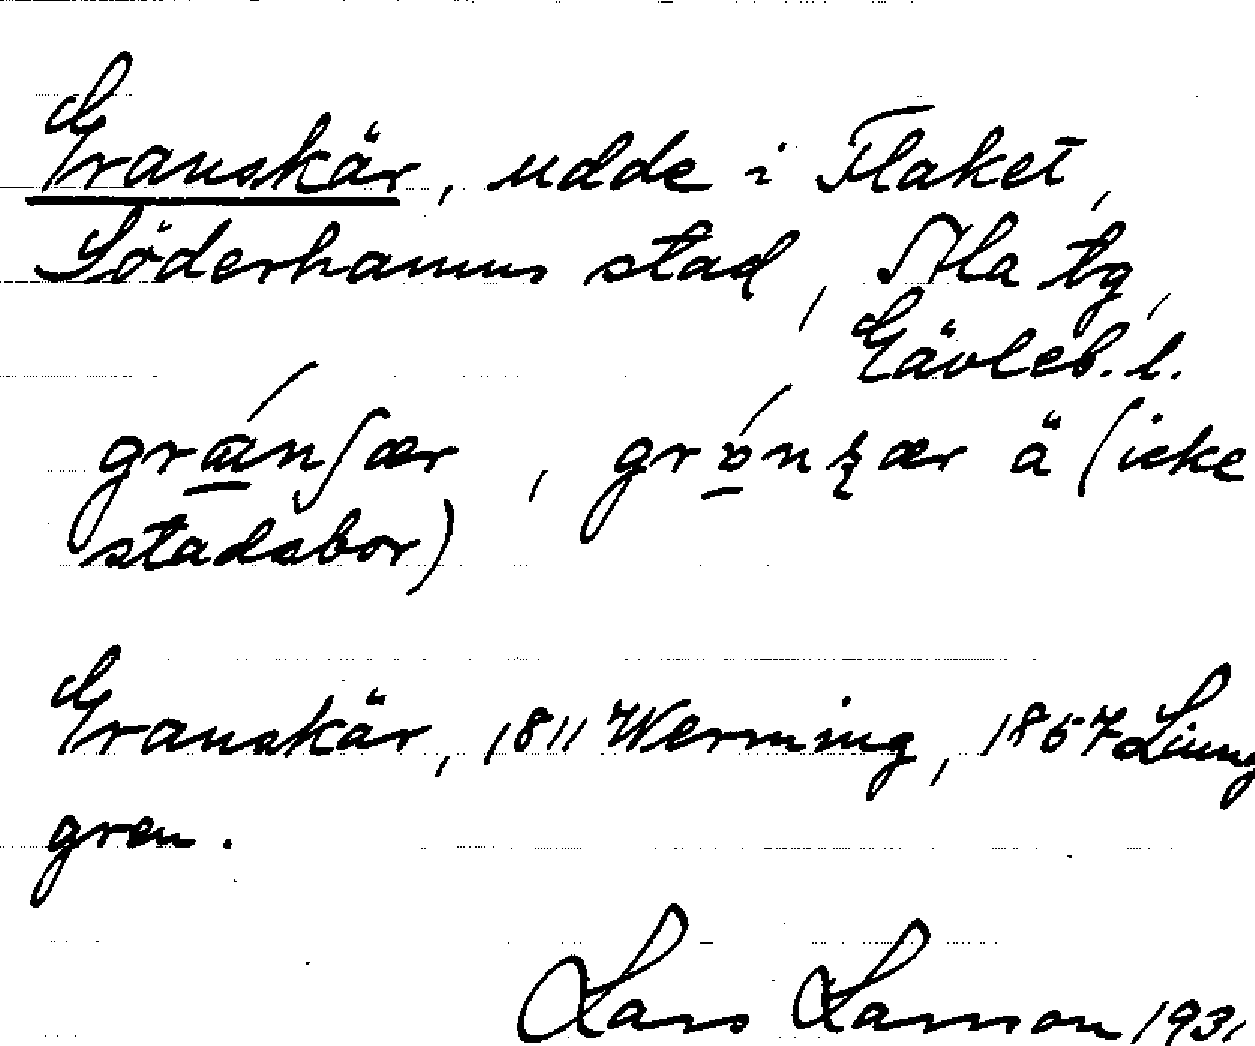 Granskär, udde i Flaket,
Söderhamns stad, Ala tg,
Gävleb. l.
stadsbor)
Granskär, 1811 Werming, 1857 Liung
gren.
Lars Larsson 1931